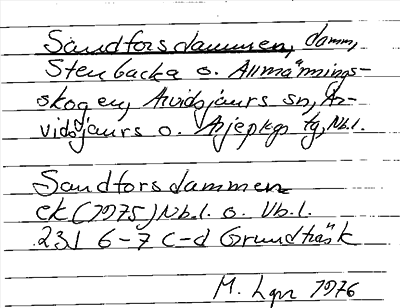 Sandforsdammen, damm,
Stenbacka o. Allmännings-
skogen, Arvidsjaurs sn, Ar-
vidsjaurs o. Arjepkgs tg, Nb.l.
Sandforsdammen
ek (1975) Nb.l. o. Vb.l.
23 I 6-7 c-d Grundträsk
M. Lgn 1976